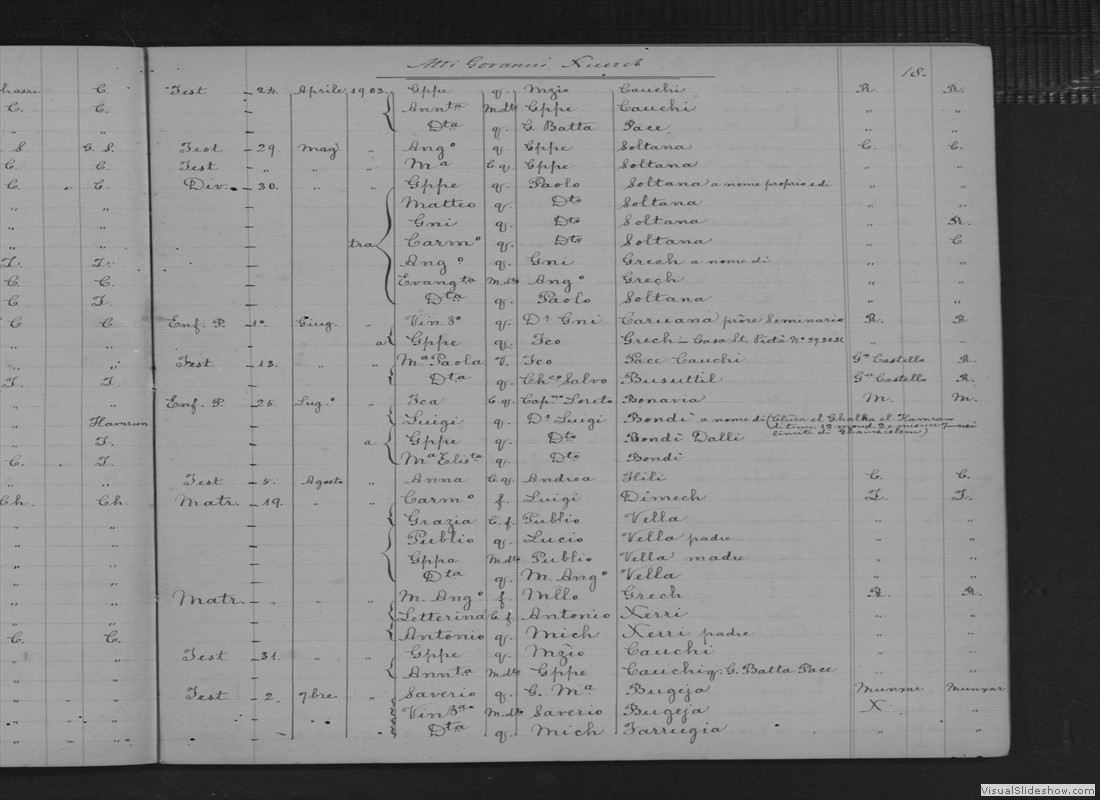 Atti Govanni Xuereb
18.
hassri C. Test 24. Aprile 1903. Gppe q. Mzio Cauchi R. R.
C. C. Annta M.dto Gppe Cauchi " "
" " Dta q. G. Batta Pace " "
S G. S. Test 29. Mag " Ango q. Gppe Soltana C. C.
C. C. Test " " " Ma C q Gppe Soltana " "
C. C. Div. 30. " " Gppe q. Paolo Soltana a nome proprio e di " "
" " Matteo q. Dto Soltana " "
" " Gni q. Dto Soltana " R.
" " tra Carmo q. Dto Soltana " C
T. T. Ango q. Gni Grech a nome di " "
C. C. Evangta M.dto Ango Grech " "
C T. Dta q. Paolo Soltana " "
C C Enf. P. 1o Giug. " Vinzo q. Dr Gni Caruana prõre Seminario R. R
" " a Gppe q. Fco Grech - Casa St. Victa No 29,30,31. " "
" " Test 13. " " Ma Paola V. Fco Pace Cauchi Ga Castello R.
T. T. Dta q. Chco Salvo Busuttil Ga Castello R.
" " Enf. P. 25. Lugo " Fca C. q. Capno Loreto Bonavia M. M.
" Hamrun Luigi q. Dr Luigi Bondi a nome di (Clusa el Ghalka el Hamra
di tum. 12 mond. 2 e misure 7 nei
limiti di Ghainsielem)
" T. a Gppe q. Dto Bondi Dalli
C. T. Ma Elista q. Dto Bondi
" " Test 5. Agosto " Anna C q. Andrea Hili C. C.
Ch. Ch. Matr. 19. " " Carmo f. Luigi Dimech T. T.
" " Grazia C. f. Publio Vella " "
" " Publio q. Lucio Vella padre " "
" " Gppa M.dto Publio Vella madre " "
" " Dta q. M. Ango Vella " "
" " Matr. " " " M. Ango f. Mllo Grech R. R.
" " Letterina C. f. Antonio Xerri " "
C. C. Antonio q. Mich Xerri padre " "
" " Test 31. " " Gppe q. Mzio Cauchi " "
" " Annta M.dto Gppe Cauchi q. G. Batta Pace " "
" " Test 2. 7bre " Saverio q. G. Ma Bugeja Munxar Munxar
" " Vinza M.dto Saverio Bugeja X "
" " Dta q. Mich Farrugia " "
VisualSlideshow.com